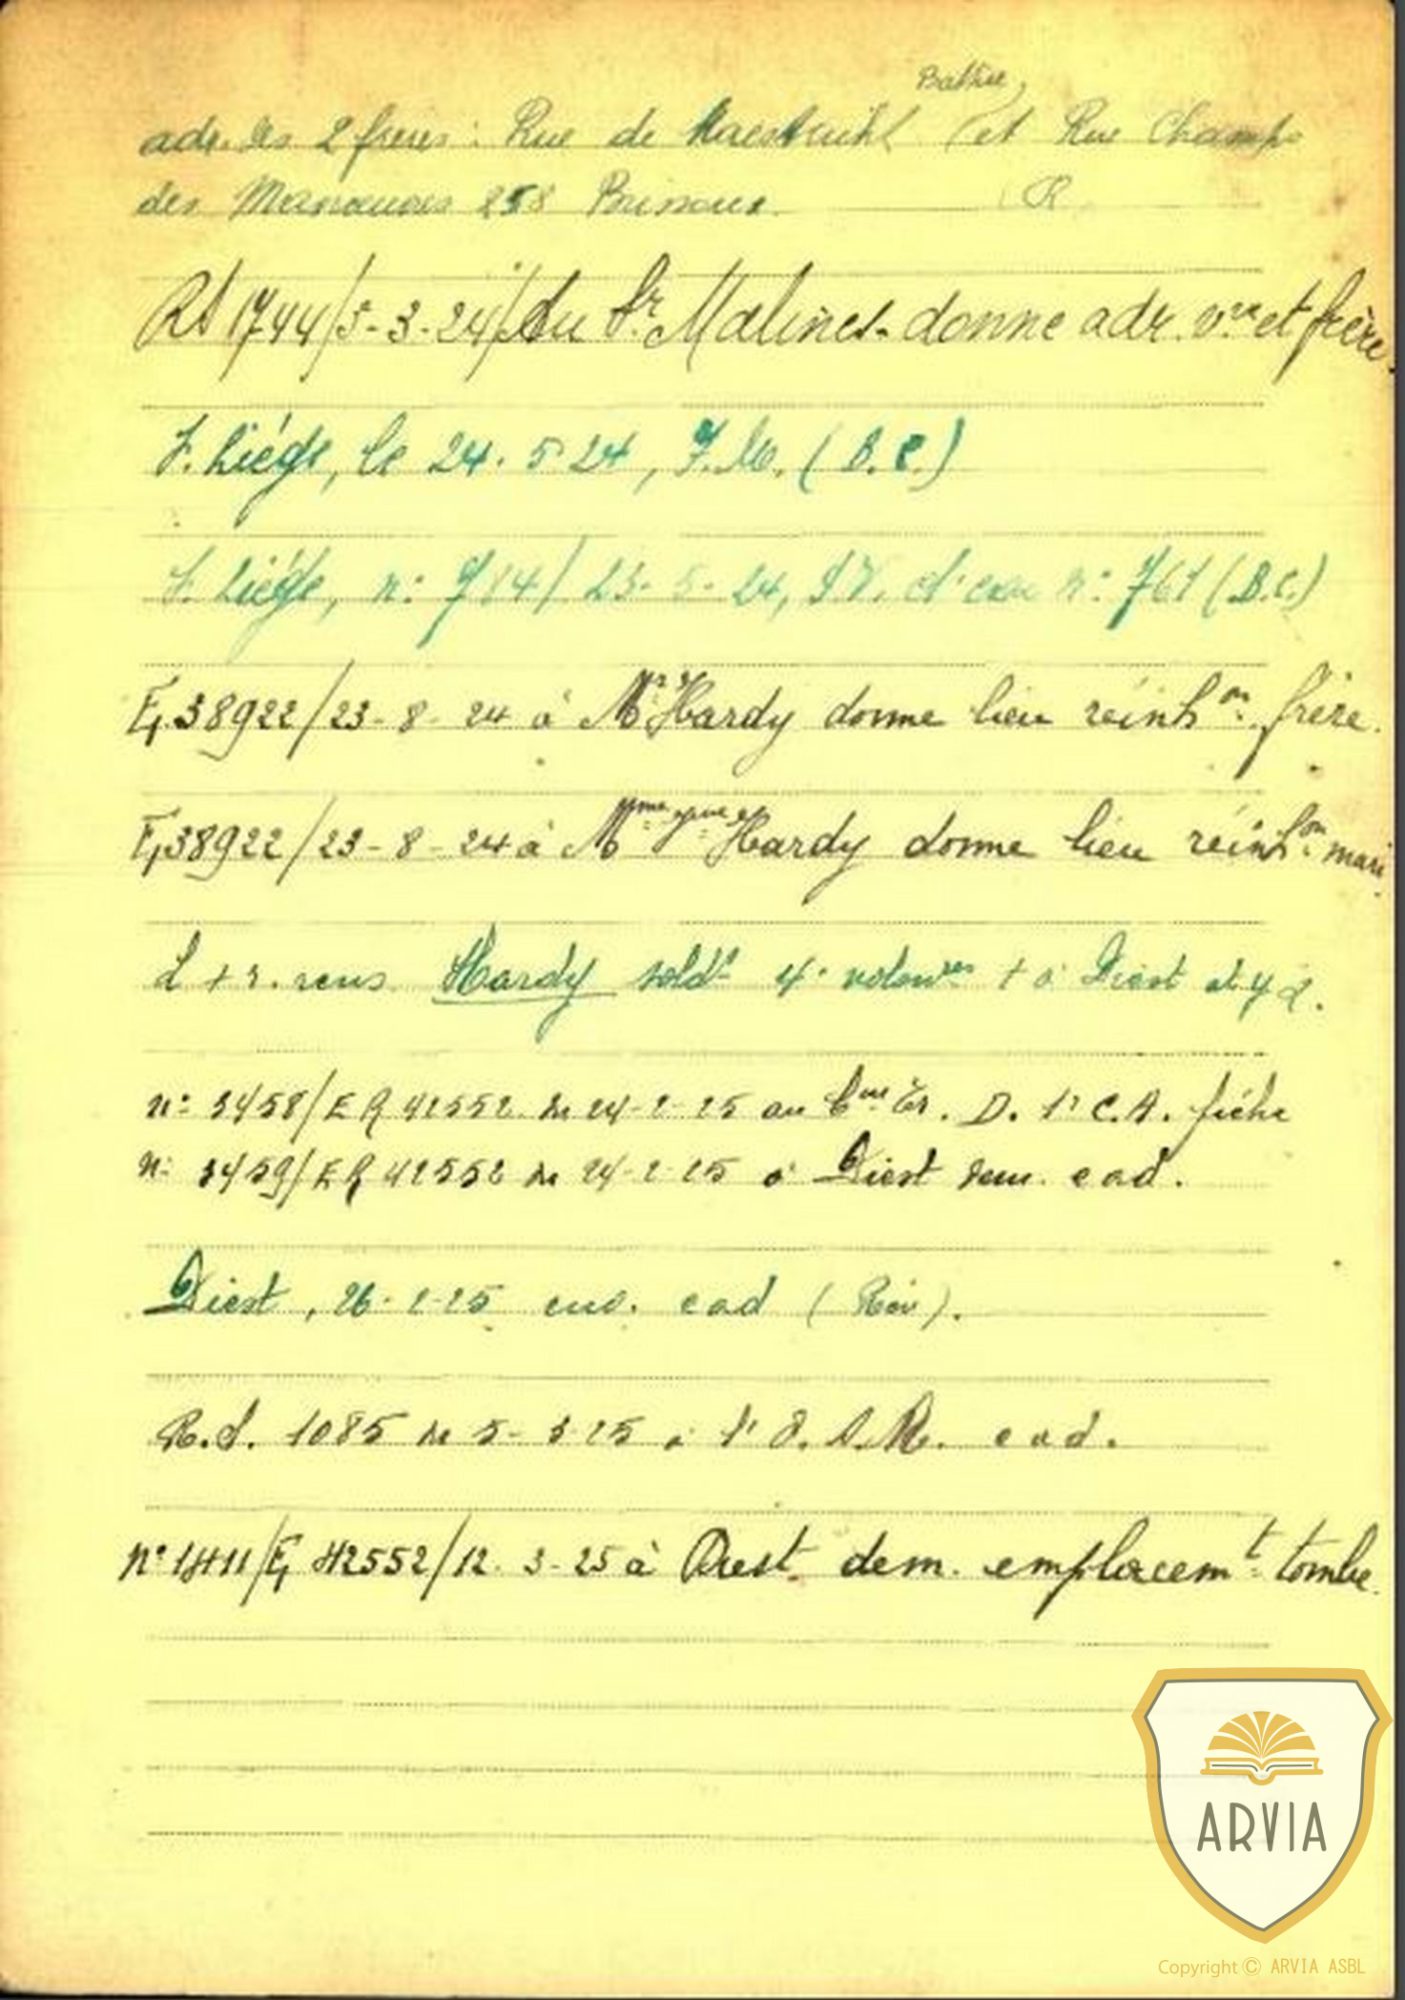 Battice
adr. des 2 frères : Rue de Maestricht (et Rue Champs
des Manoeuvres 258 Bressoux. (R
RS 1744/5-3-24/Au Sr Malines. donne adr. vve et frère.
S. Liége, le 24. 5 24, F.M. (B.C.)
S. Liége, n: 784/ 23- 5- 24, P.V. d'exh n: 761 (B.C.)
E, 38922/23- 8- 24 à Mr Hardy donne lieu réinhon frère.
E, 38922/23- 8- 24 à Mme Vve Hardy donne lieu réinhon mari.
L + r. rens. Hardy soldt 4e volonres + à Diest et y d.
n: 3458/ER 42552 du 24-2-25 au Cre Er. D. 1e C.A. fiche
n: 3459/ER 42552 du 24-2-25 à Diest dem. e a d.
Diest, 26-2-25 env. e a d (Rév).
R.S. 1085 du 5-3-25 à l'O. S. M. e a d.
N° 1411/E, 42552/12. 3- 25 à Diest dem. emplacemt tombe.
ARVIA
Copyright © ARVIA ASBL